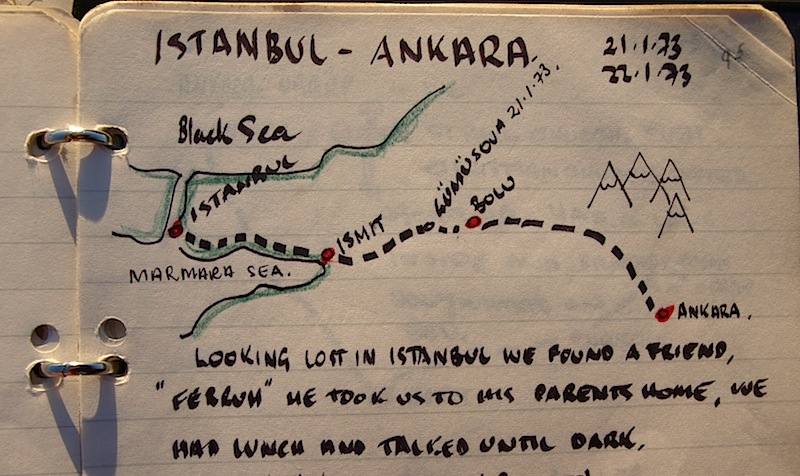 ISTANBUL - ANKARA.
21.1.73
22.1.73
95
Black Sea
ISTANBUL
GÜMÜSOVA 21.1.73.
BOLU
ISMIT
MARMARA SEA.
ANKARA.
LOOKING LOST IN ISTANBUL WE FOUND A FRIEND,
"FERRUH" HE TOOK US TO HIS PARENTS HOME, WE
HAD LUNCH AND TALKED UNTIL DARK,